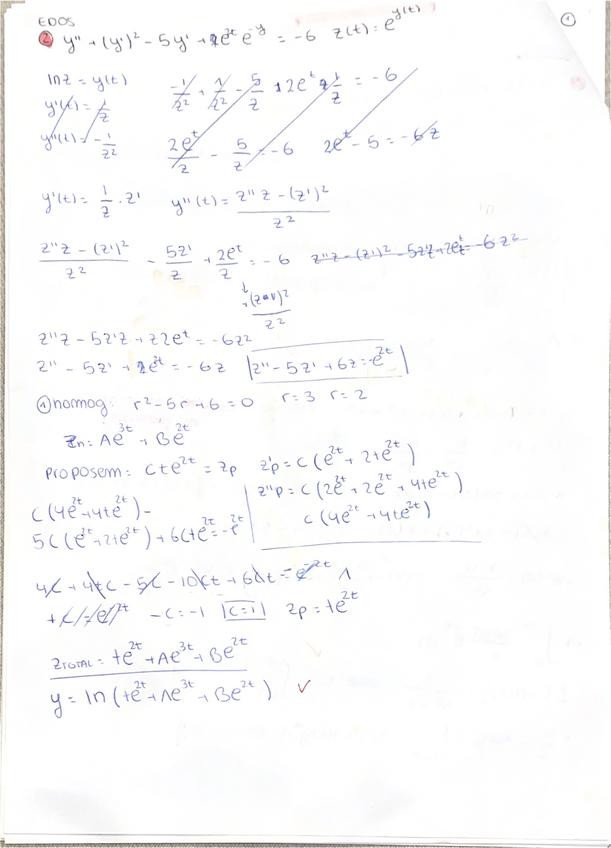 EDOS
①
② y'' + (y')² - 5y' + e^{2t} e^{-y} = -6   z(t) = e^{y(t)}
ln z = y(t)   -1/z² + 1/z² - 5/z + 2e^t · 1/z = -6
y'(t) = 1/z
y''(t) = -1/z²   2e^t/z - 5/z = -6   2e^t - 5 = -6z
y'(t) = 1/z · z'   y''(t) = (z''z - (z')²)/z²
(z''z - (z')²)/z² - 5z'/z + 2e^t/z = -6   z''z - (z')² - 5z'z + 2e^t z = -6z²
↓
z''z - 5z'z + z2e^t = -6z²
z'' - 5z' + e^{2t} = -6z   z'' - 5z' + 6z = -e^{2t}
① homog: r² - 5r + 6 = 0   r = 3   r = 2
Zn: Ae^{3t} + Be^{2t}
PROPOSEM: cte^{2t} = zp   z'p = c(e^{2t} + 2te^{2t})
z''p = c(2e^{2t} + 2e^{2t} + 4te^{2t})
c(4e^{2t} + 4te^{2t})
c(4e^{2t} + 4te^{2t}) -
5c(e^{2t} + 2te^{2t}) + 6cte^{2t} = -e^{2t}
4c + 4tc - 5c - 10ct + 6ct = -e^{2t} 1
-c = -1   c = 1   zp = te^{2t}
ZTOTAL = te^{2t} + Ae^{3t} + Be^{2t}
y = ln(te^{2t} + Ae^{3t} + Be^{2t}) ✓